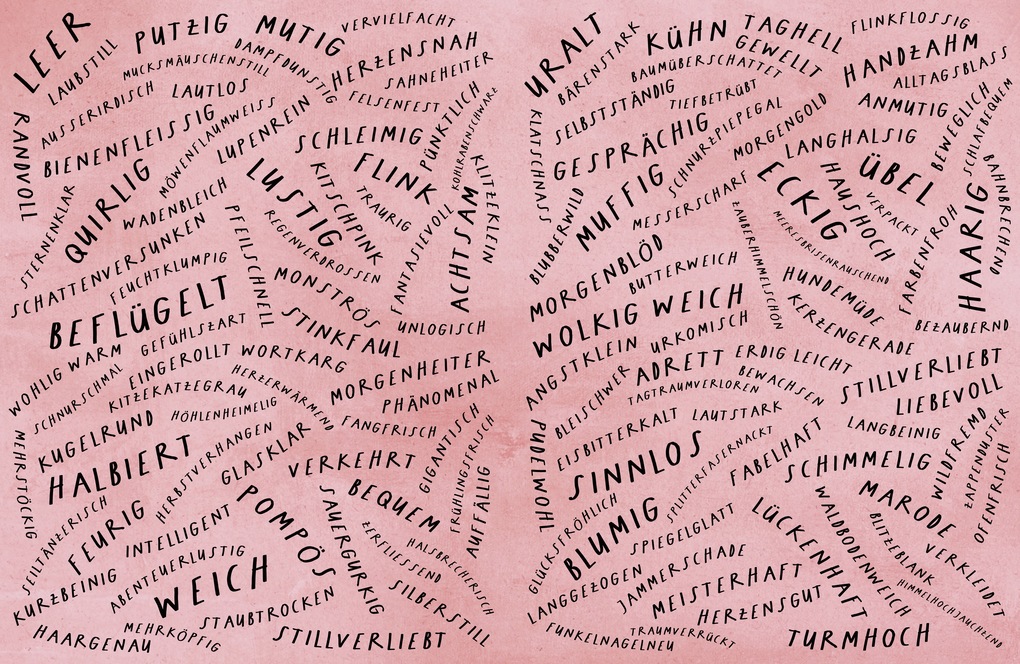 LEER
LAUBSTILL
PUTZIG
MUTIG
VERVIELFACHT
MUCKSMÄUSCHENSTILL
DAMPFDUNSTIG
HERZENSNAH
SAHNEHEITER
AUSSERIRDISCH
LAUTLOS
FELSENFEST
RANDVOLL
BIENENFLEISSIG
MÖWENFLAUMWEISS
LUPENREIN
SCHLEIMIG
PÜNKTLICH
KOHLRABENSCHWARZ
STERNENKLAR
QUIRLIG
WADENBLEICH
LUSTIG
KITSCHPINK
FLINK
TRAURIG
KLITZEKLEIN
SCHATTENVERSUNKEN
PFEILSCHNELL
REGENVERDROSSEN
FANTASIEVOLL
ACHTSAM
FEUCHTKLUMPIG
MONSTRÖS
BEFLÜGELT
STINKFAUL
UNLOGISCH
GEFÜHLSZART
WOHLIG WARM
EINGEROLLT
WORTKARG
SCHNURSCHMAL
KITZEKATZEGRAU
HERZERWÄRMEND
MORGENHEITER
PHÄNOMENAL
KUGELRUND
HÖHLENHEIMELIG
FANGFRISCH
MEHRSTÖCKIG
HALBIERT
HERBSTVERHANGEN
GLASKLAR
VERKEHRT
GIGANTISCH
FRÜHLINGSFRISCH
AUFFÄLLIG
SEILTÄNZERISCH
FEURIG
BEQUEM
INTELLIGENT
POMPÖS
SAUERGURKIG
ZERFLIESSEND
HALSBRECHERISCH
KURZBEINIG
ABENTEUERLUSTIG
WEICH
SILBERSTILL
STAUBTROCKEN
HAARGENAU
MEHRKÖPFIG
STILLVERLIEBT
URALT
BÄRENSTARK
KÜHN
TAGHELL
FLINKFLOSSIG
GEWELLT
HANDZAHM
BAUMÜBERSCHATTET
ALLTAGSBLASS
SELBSTSTÄNDIG
TIEFBETRÜBT
ANMUTIG
KLATSCHNASS
GESPRÄCHIG
SCHNURZPIEPEGAL
MORGENGOLD
LANGHALSIG
BEWEGLICH
SCHLAFBEQUEM
BLUBBERWILD
MUFFIG
MESSERSCHARF
ECKIG
HAUSHOCH
ÜBEL
VERPACKT
BAHNBRECHEND
MORGENBLÖD
BUTTERWEICH
ZAUBERHIMMELSCHÖN
MEERESBRISENRAUSCHEND
FARBENFROH
HAARIG
HUNDEMÜDE
WOLKIG WEICH
KERZENGERADE
BEZAUBERND
ANGSTKLEIN
URKOMISCH
BLEISCHWER
ADRETT
ERDIG LEICHT
STILLVERLIEBT
TAGTRAUMVERLOREN
BEWACHSEN
LIEBEVOLL
EISBITTERKALT
LAUTSTARK
LANGBEINIG
PUDELWOHL
SINNLOS
SPLITTERFASERNACKT
FABELHAFT
SCHIMMELIG
WILDFREMD
ZAPPENDUSTER
OFENFRISCH
GLÜCKSFRÖHLICH
BLUMIG
SPIEGELGLATT
LÜCKENHAFT
WALDBODENWEICH
MARODE
BLITZEBLANK
VERKLEIDET
LANGGEZOGEN
JAMMERSCHADE
HIMMELHOCHJAUCHZEND
MEISTERHAFT
HERZENSGUT
FUNKELNAGELNEU
TRAUMVERRÜCKT
TURMHOCH